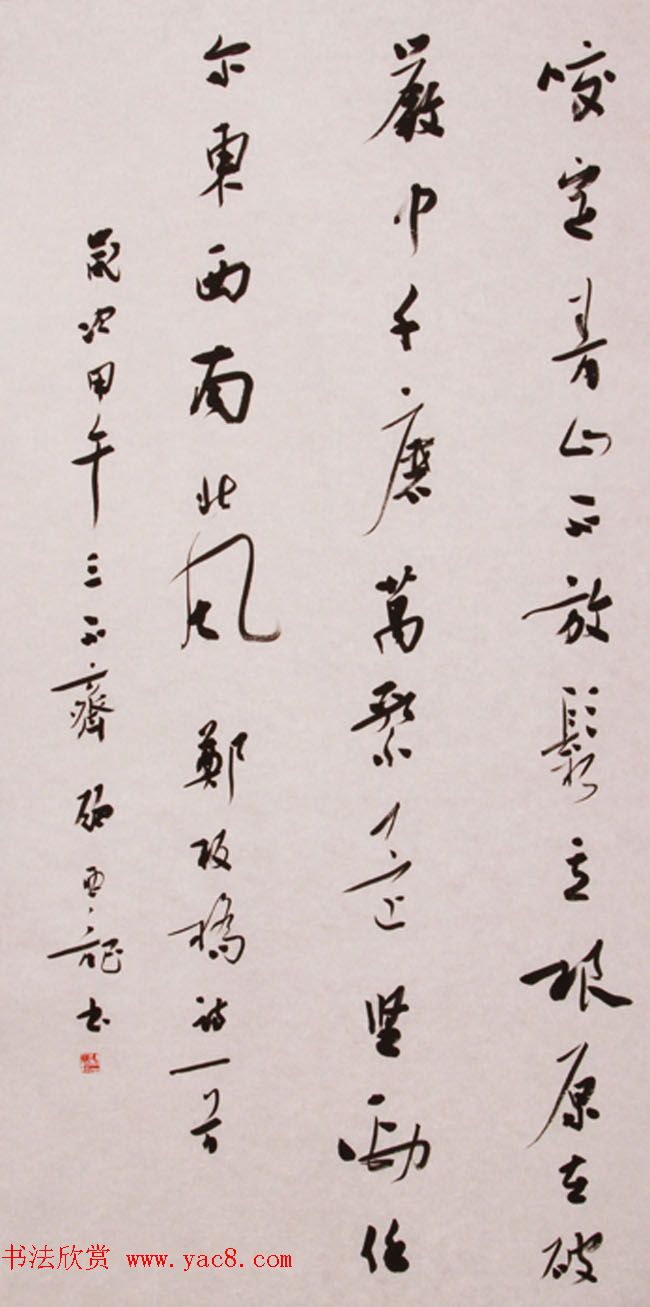 咬定青山不放鬆立根原在破
巖中千磨萬擊還坚勁任
尔東西南北風 鄭板橋詩一首
歲次甲午三不齋顧亞龍書
书法欣赏 www.yac8.com